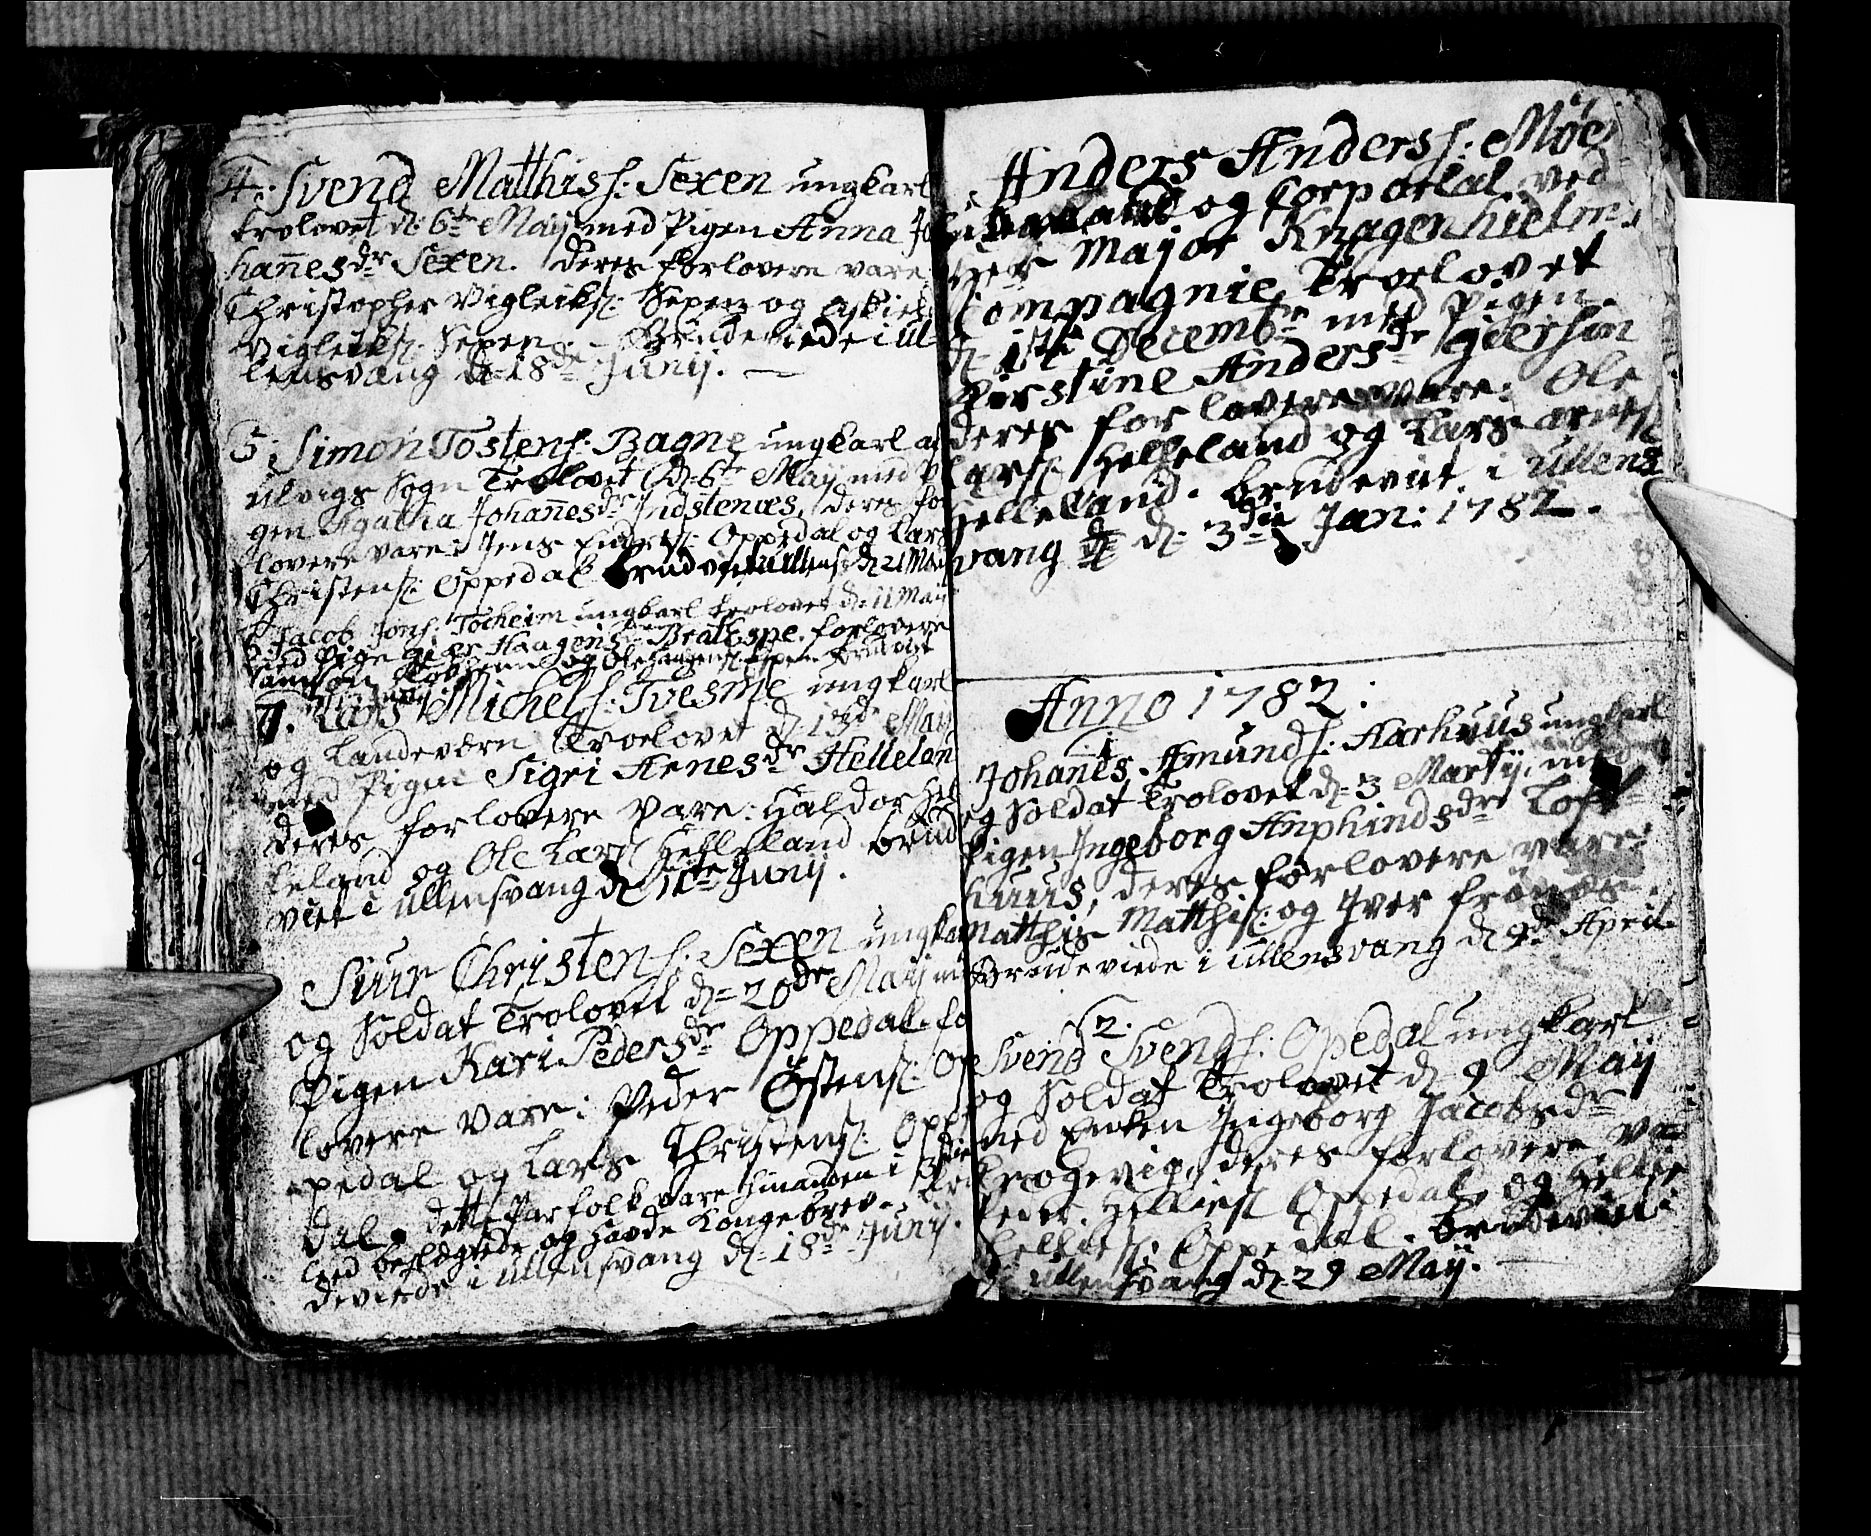 4. Svend Matthisſ: Sexen ungkarl
trolovet d: 6te Maij med Pigen Anna Jo
han̄esdr Sexen. Deres forlovere vare
Christopher Vigleiksſ: Sexen og
Vigleiksſ. Sexen. Brudeviede i Ul-
lensvang d 18de Junij.
5. Simon Tostensſ: Bagne ungkarl af
Ulvigs Sogn Trolovet d. 6te Maij med Pi
gen Agatha Johan̄esdr Indstenæs, deres for
lovere vare: Jens Endresſ: Oppedal og Lars
Christensſ. Oppedal Brudviet i Ullensv d 21 Maij
6 Jacob Jonsſ: Tocheim ungkarl trolovet d: 11 Maij
med Pige Haagensdr Bratespe. forlovere
og Ole Haagensſ Espen Brudviet
7. Lars Michelsſ: Tvesme ungkarl
og Landeværn Troelovet d 13de Maij
med Pigen Sigri Arnesdr Hellelan
deres forlovere vare: Haldor Hel
leland og Ole Larsſ Helleland brud
viet i Ullensvang d 11te Junij.
Siur Christensſ: Sexen ungka
og Soldat Trolovet d: 20de Maij m
Pigen Kari Pedersdr Oppedal. fo
lovere vare: Peder Østensſ: Op
pedal og Lars Christensſ: Oppe
dal. dette Parfolk vare hinanden i 3die
Leed beslegtede og havde Kongebrev. Bru
deviede i Ullensvang d: 18de Junij.
Anders Andersſ: Møe
og Corporal ved
Herr Major Knagenhielms
Compagnie, Troelovet
d: 1ste Decembr med Pigen
Kirstine Andersdr Gjerssin
deres forlovere vare: Ole
Larsſ. Helleland og Lars Arnesſ
Helleland. Brudeviet i Ullens
vang d: 3die Jan: 1782.
Anno 1782:
1.
Johan̄es Amundsſ: Aarhuus ungkarl
og Soldat Trolovet d: 3 Martij, med
Pigen Ingeborg Anphindsdr Loft-
huus, deres forlovere vare:
Matthis Matthisſ: og Iver Frönæs.
Brudeviede i Ullensvang d 9de April.
2.
Svend Svendsſ: Opedal ungkarl
og Soldat Trolovet d 9 Maij
med Enken Ingeborg Jacobsdr
Krogevig, deres forlovere va-
Peder Helliesſ Oppedal, og Hellie
Helliesſ: Oppedal. Brudeviet i
Ullensvang d: 29 Maij.